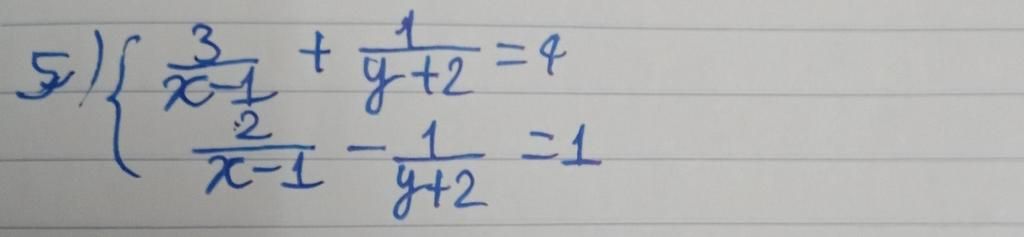 5) { 3/(x-1) + 1/(y+2) = 4
2/(x-1) - 1/(y+2) = 1